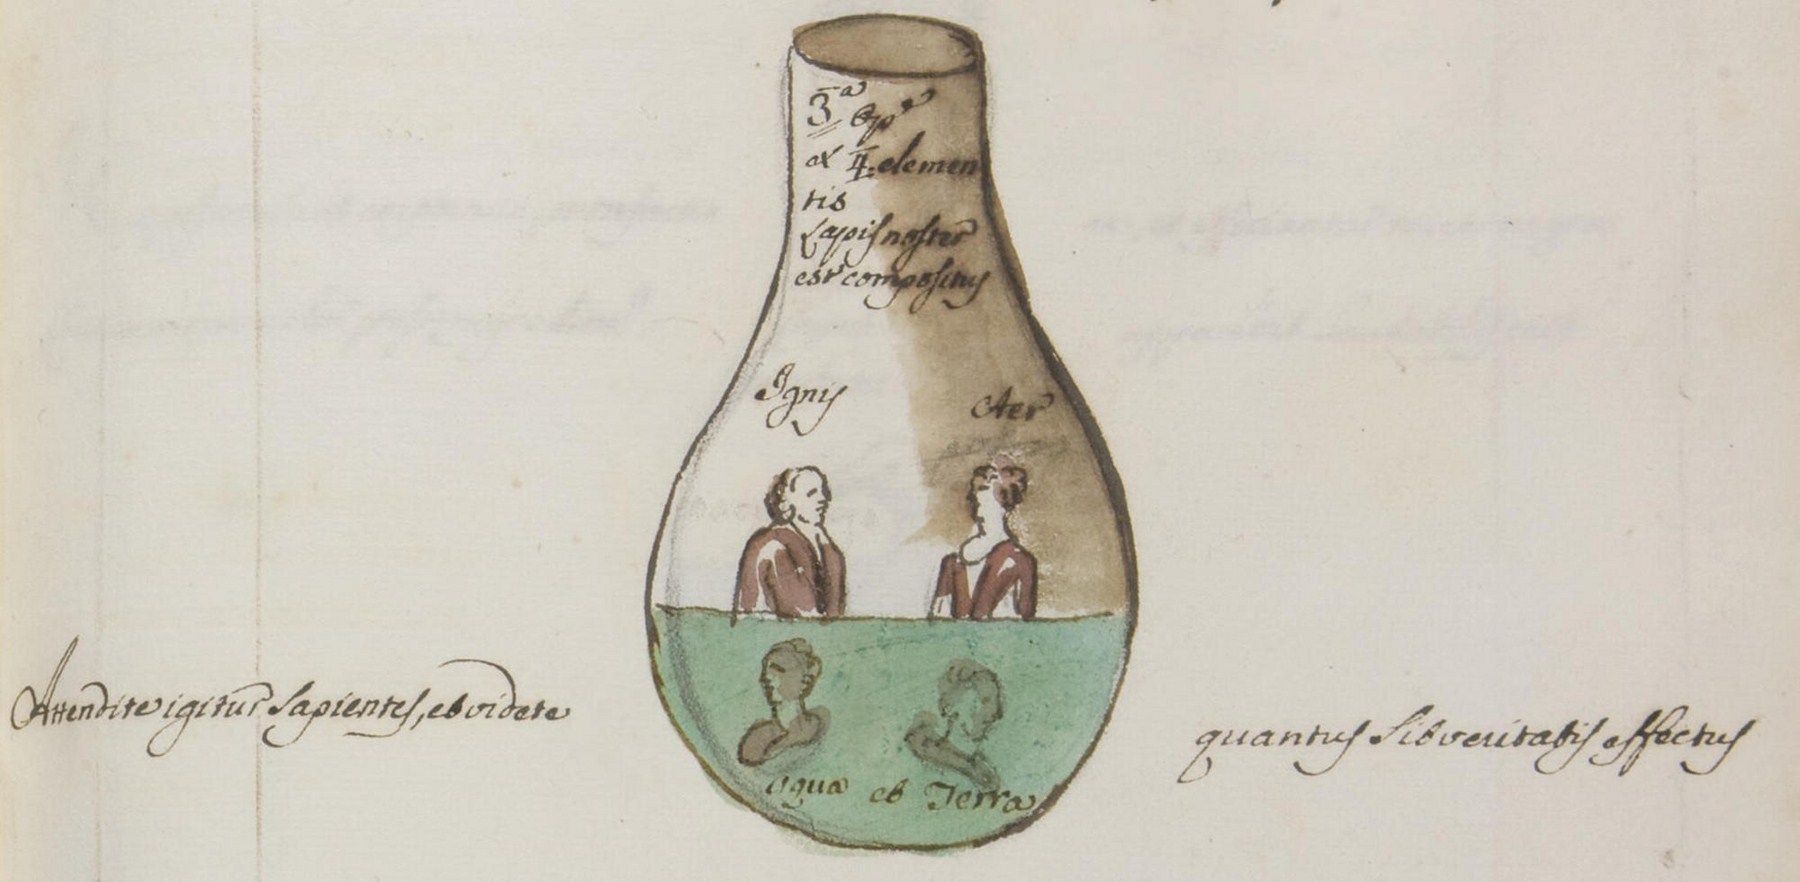 3ª Opª
ex 4. elemen
tis
Lapis noster
est compositus
Ignis
Aer
Attendite igitur Sapientes, et videte
quantus sit veritatis effectus
aqua et Terra